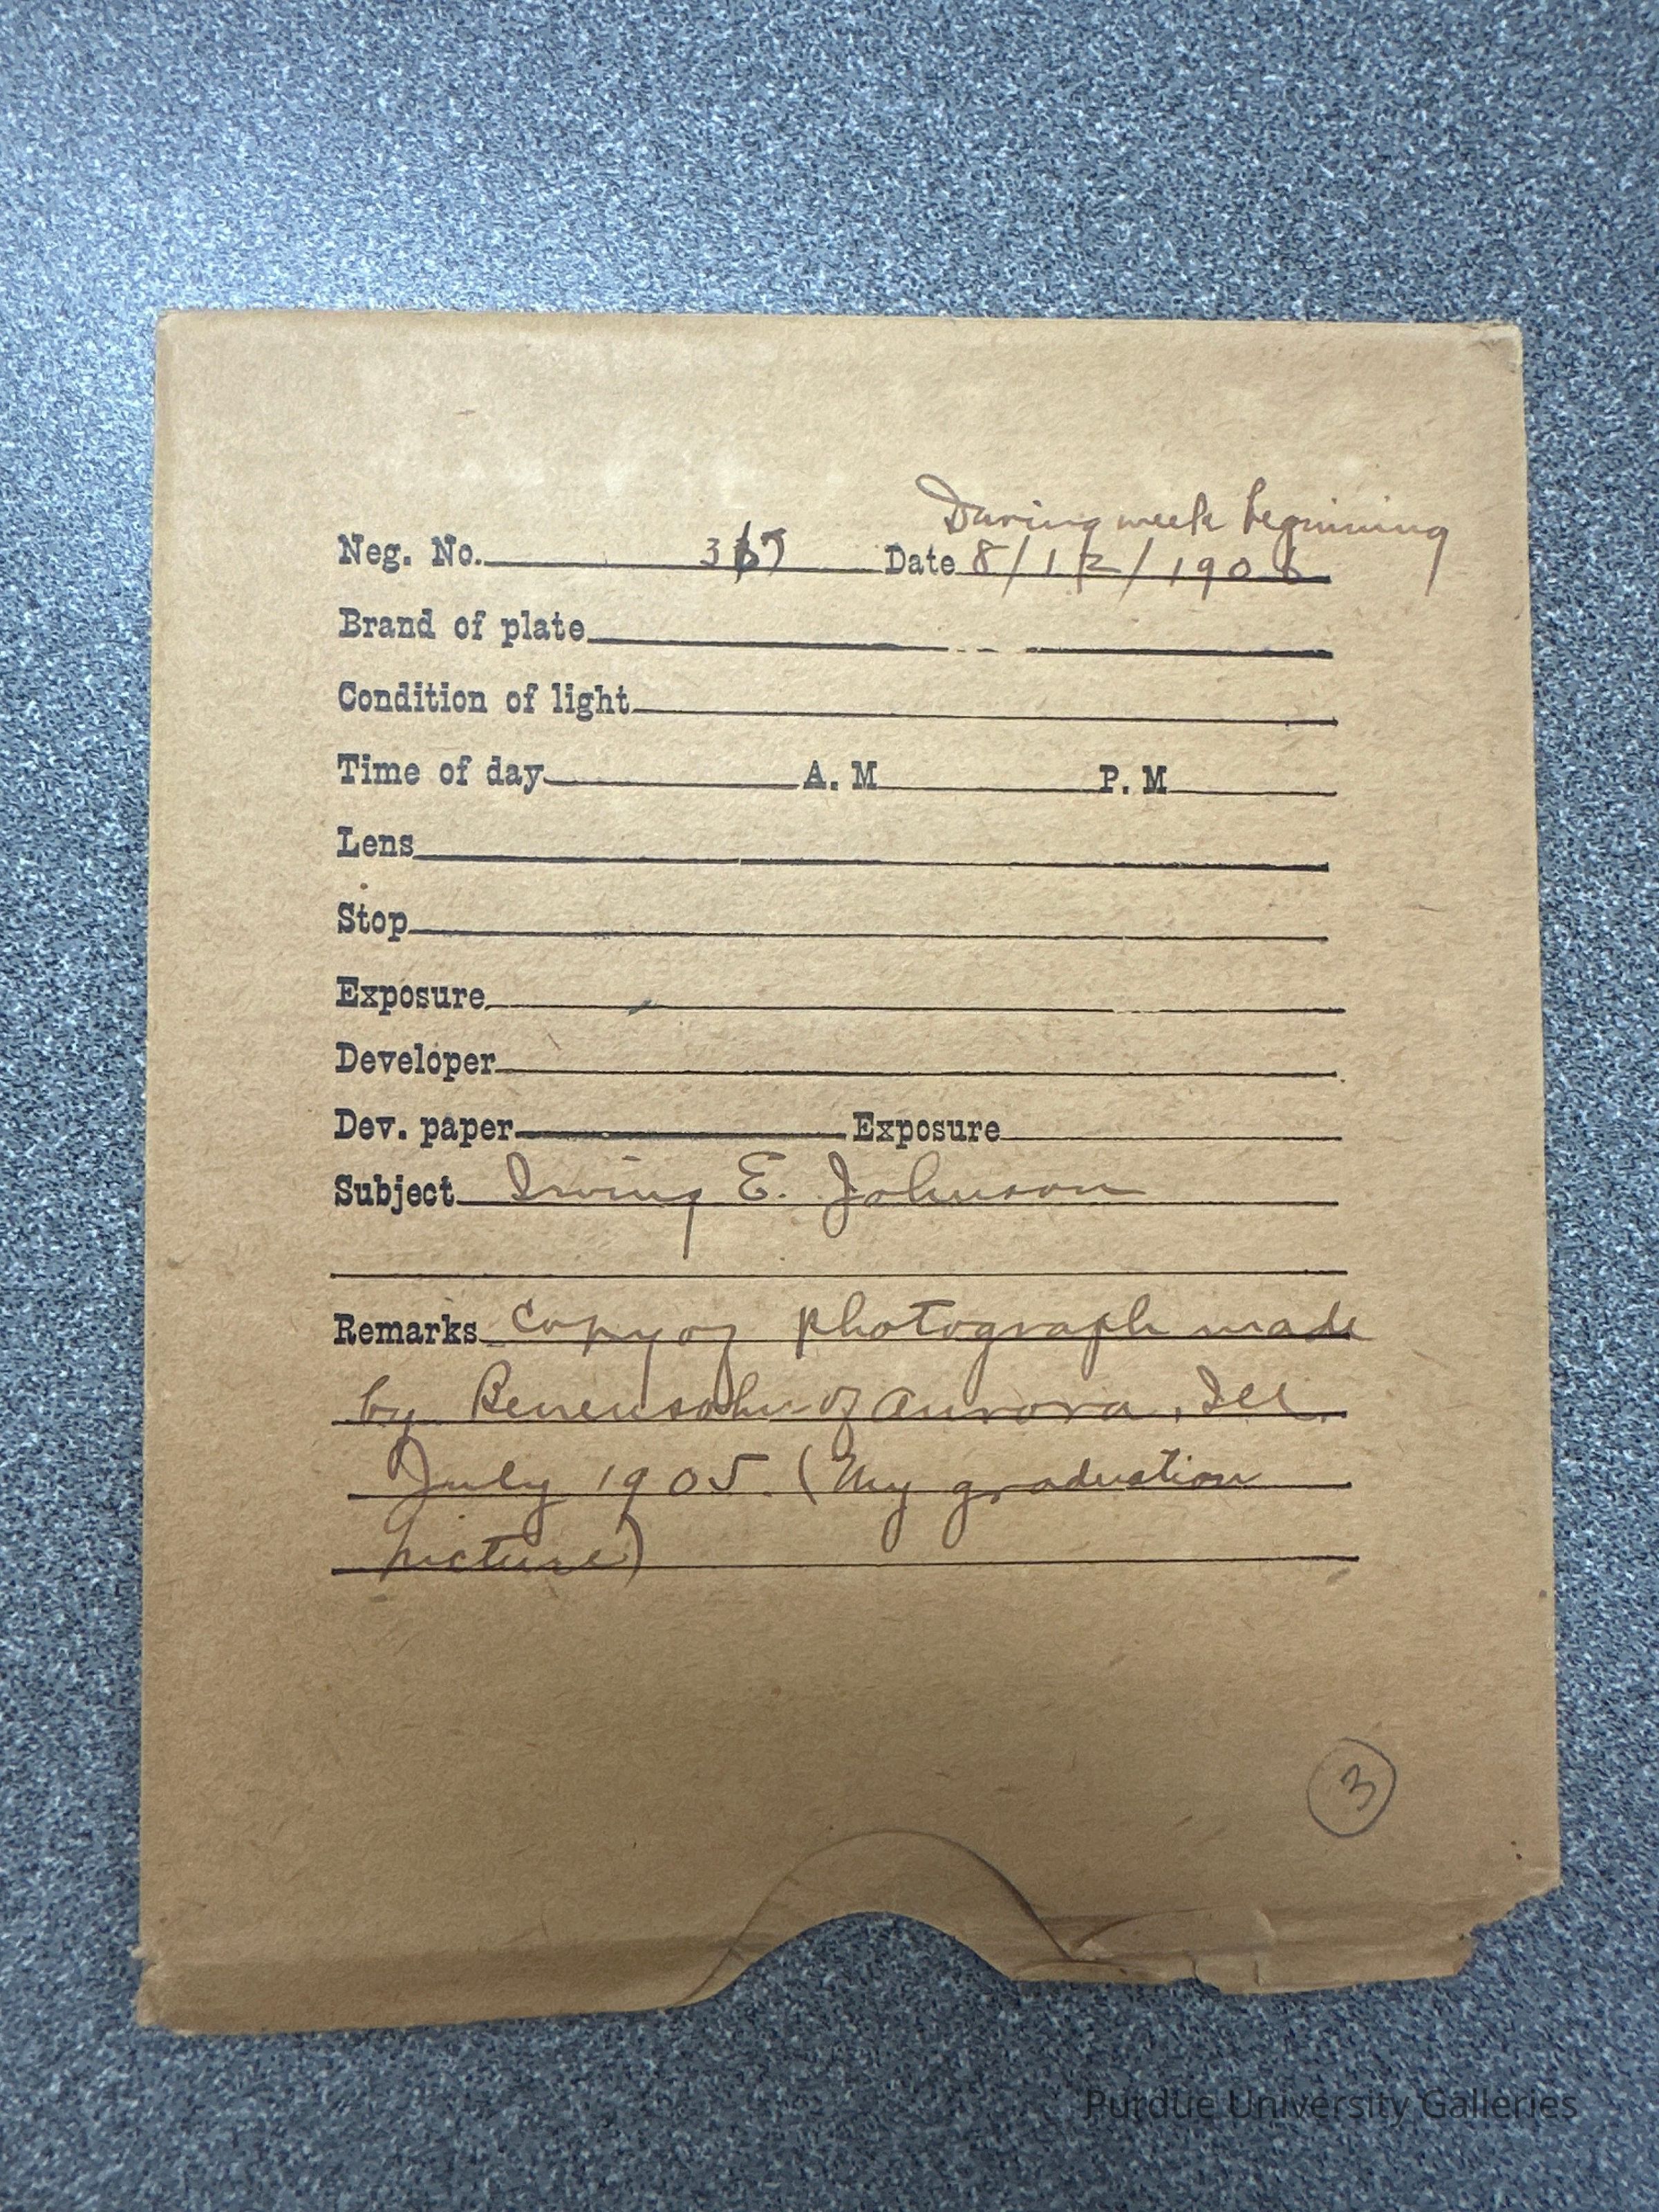 During week beginning
Neg. No. Date 8/12/1906
Brand of plate
Condition of light
Time of day A. M P. M
Lens
Stop
Exposure
Developer
Dev. paper Exposure
Subject Irving E. Johnson
Remarks Copy of photograph made
by Benensohn of Aurora, Ill.
July 1905. (My graduation
picture)
3
Purdue University Galleries